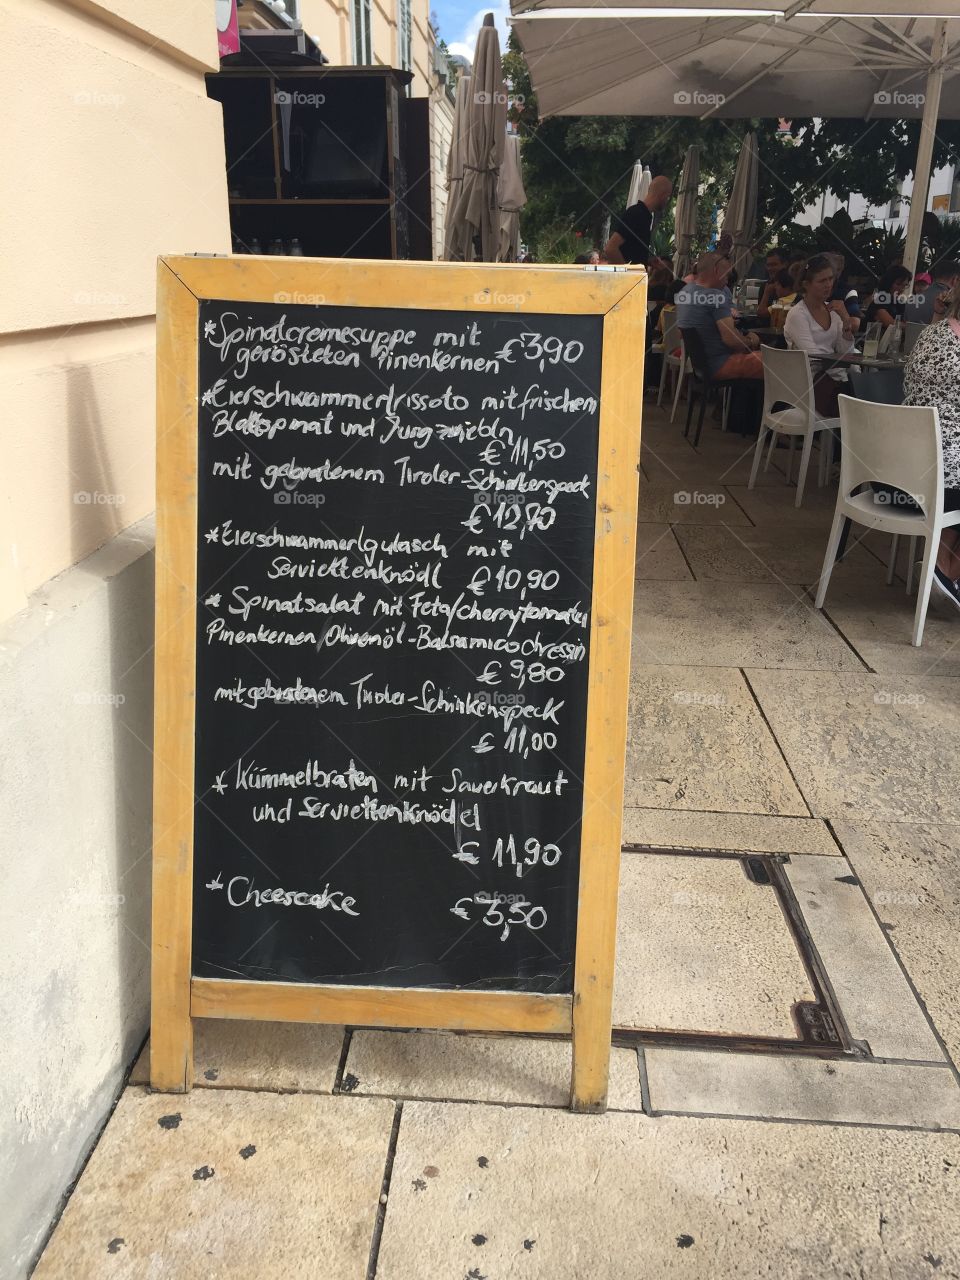 *Spinatcremesuppe mit
gerösteten Pinenkernen €3,90
*Eierschwammerlrissoto mit frischem
Blattspinat und Jungzwiebln
€11,50
mit gebratenem Tiroler-Schinkenspeck
€12,70
*Eierschwammerlgulasch mit
Serviettenknödl €10,90
*Spinatsalat mit Feta/Cherrytomaten
Pinenkernen/Olivenöl-Balsamicodressin
€9,80
mit gebratenem Tiroler-Schinkenspeck
€11,00
*Kümmelbraten mit Sauerkraut
und Serviettenknödel
€11,90
*Cheesecake €3,50